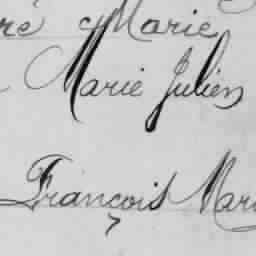 Marie
Marie Julien
François Mar